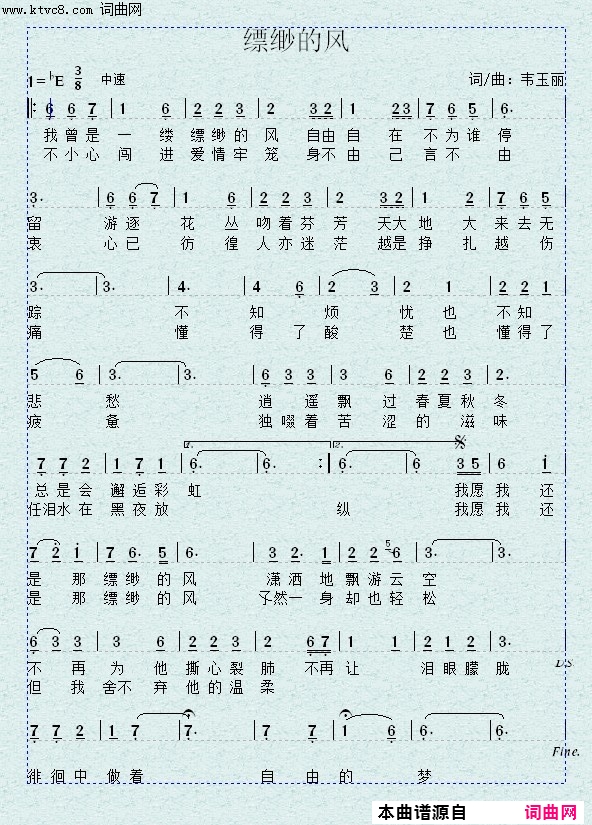 www.ktvc8.com 词曲网
缥缈的风
1=♭E 3/8 中速 词/曲：韦玉丽
6 6 7 1 6 2 2 3 2 32 1 23 7 6 5 6.
我曾是一缕缥缈的风 自由自在不为谁停
不小心闯进爱情牢笼 身不由己言不由
3. 6 6 7 1 6 2 2 3 2 32 1 2 7 6 5
留 游逐花丛吻着芬芳 天大地大来去无
衷 心已彷徨人亦迷茫 越是挣扎越伤
3. 3. 4. 4 6 2 3 2 1 2 2 1
踪 不知烦忧也不知
痛 懂得了酸楚也懂得了
5 6 3. 3. 6 3 3 3 6 2 2 3 2.
悲愁 逍遥飘过春夏秋冬
疲惫 独啜着苦涩的滋味
7 7 2 1 7 1 6. 6. 6. 6. 35 6 i
总是会邂逅彩虹 我愿我还
任泪水在黑夜放 纵 我愿我还
7 2 i 7 6. 5 6. 3 2. 1 2 2 5 6 3. 3.
是那缥缈的风 潇洒地飘游云空
是那缥缈的风 孑然一身却也轻松
6 3 3 2 1 2 2 3 2 67 1 1 2 1 2 3.
不再为他撕心裂肺 不再让泪眼朦胧
D.S.
但我舍不弃他的温柔
7 7 2 1 7 7. 7. 1 6 6.
Fine.
徘徊中做着自由的梦
本曲谱源自 词曲网